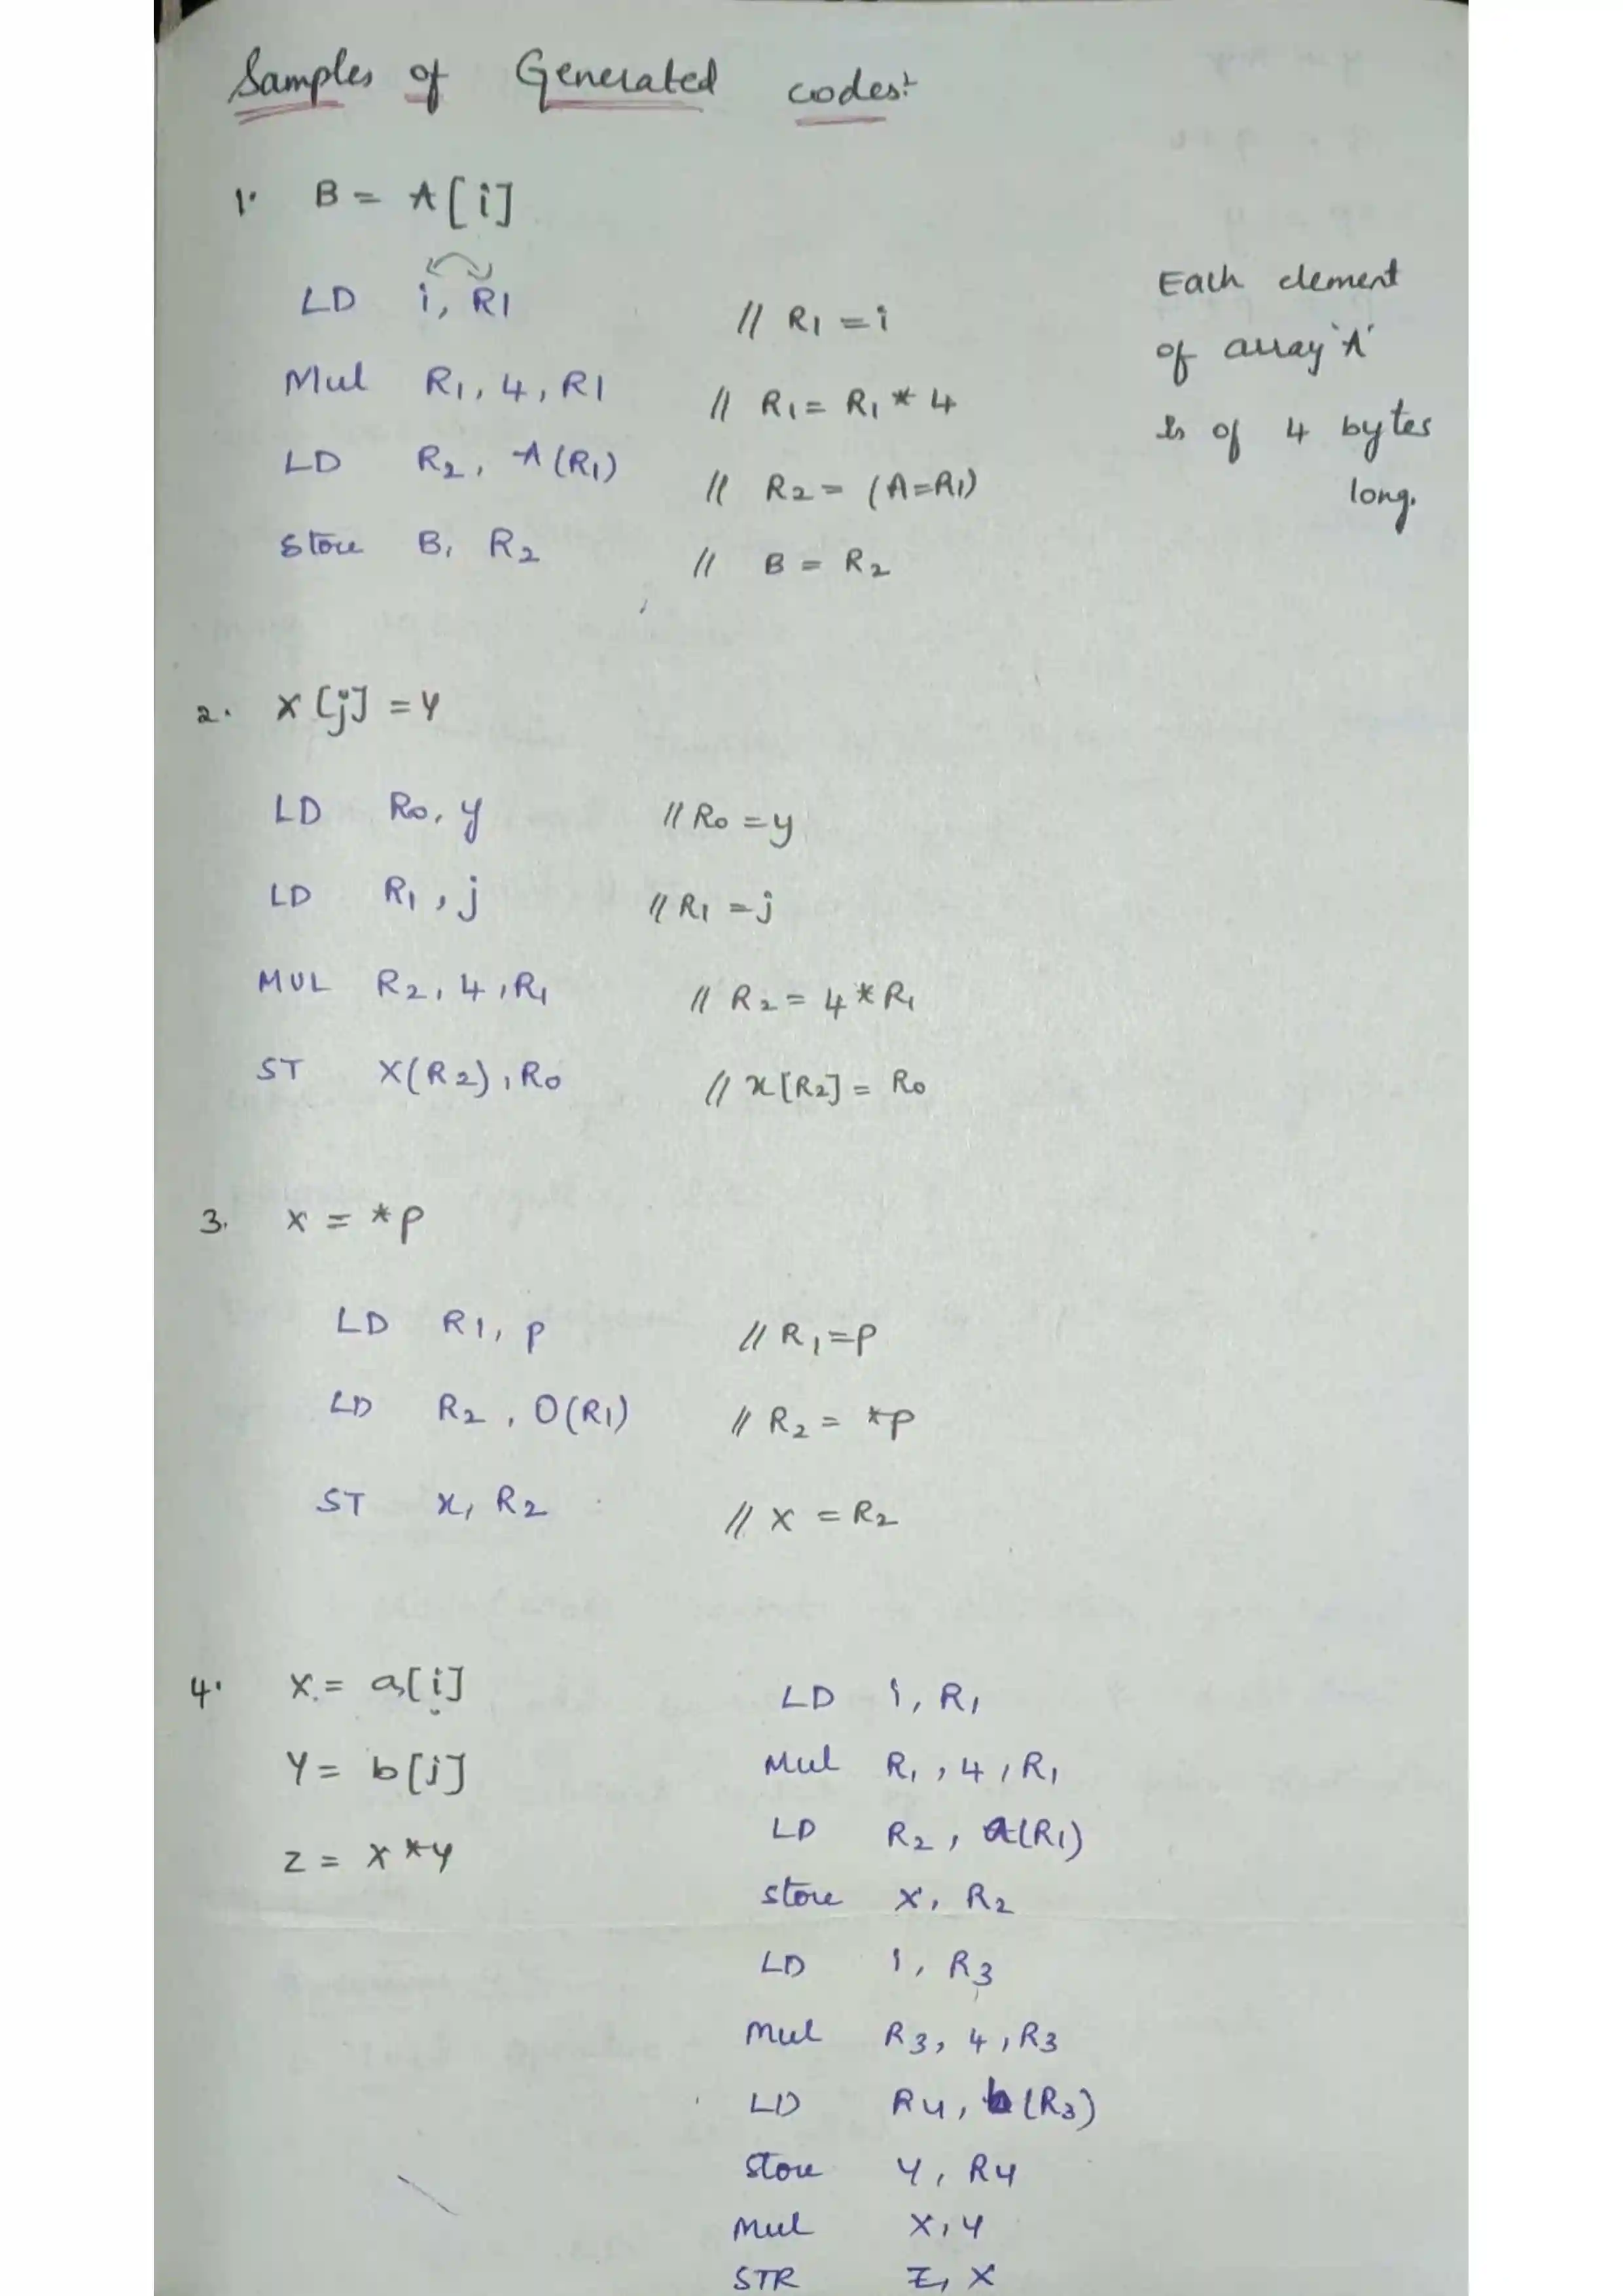 Samples of Generated codes:
1. B = A[i]
LD i, R1 // R1 = i
Mul R1, 4, R1 // R1 = R1 * 4
LD R2, A(R1) // R2 = (A=R1)
Store B, R2 // B = R2
Each element
of array 'A'
is of 4 bytes
long.
2. X[j] = Y
LD R0, y // R0 = y
LD R1, j // R1 = j
MUL R2, 4, R1 // R2 = 4 * R1
ST X(R2), R0 // x[R2] = R0
3. X = *p
LD R1, p // R1 = p
LD R2, 0(R1) // R2 = *p
ST x, R2 // X = R2
4. X = a[i]
Y = b[j]
Z = X * Y
LD i, R1
Mul R1, 4, R1
LD R2, a(R1)
Store X, R2
LD i, R3
Mul R3, 4, R3
LD R4, b(R3)
Store Y, R4
Mul X, Y
STR Z, X